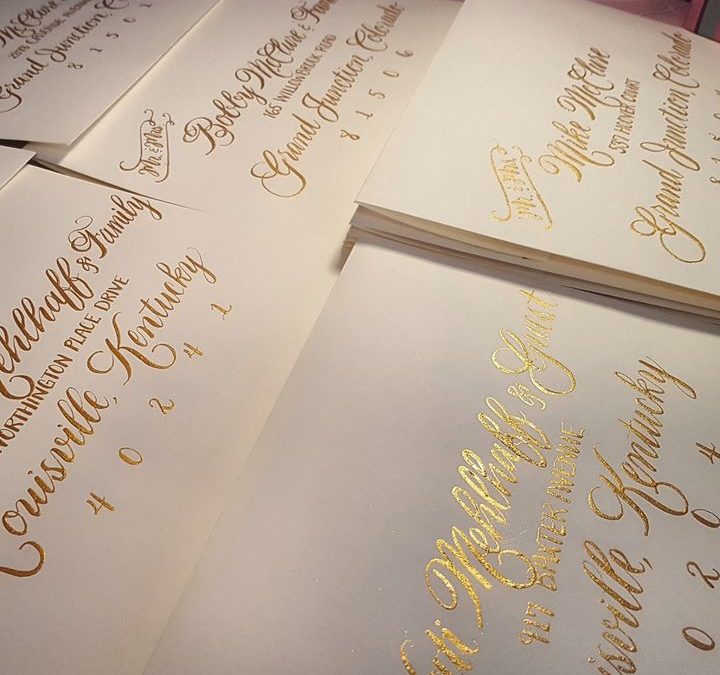 McClure
Grand Junction, C
8 1 5 0 1
Mr. & Mrs.
Bobby McClure & Fami
165 WILLOWCREEK ROAD
Grand Junction, Colorado
8 1 5 0 6
Mr. & Mrs.
Mike McClure
COURT
Grand Junction, Colorado
8 1 5
ehlhaff & Family
WORTHINGTON PLACE DRIVE
Louisville, Kentucky
4 0 2 4 1
Mehlhaff & Guest
BAXTER AVENUE
uisville, Kentucky
0 2 0 4